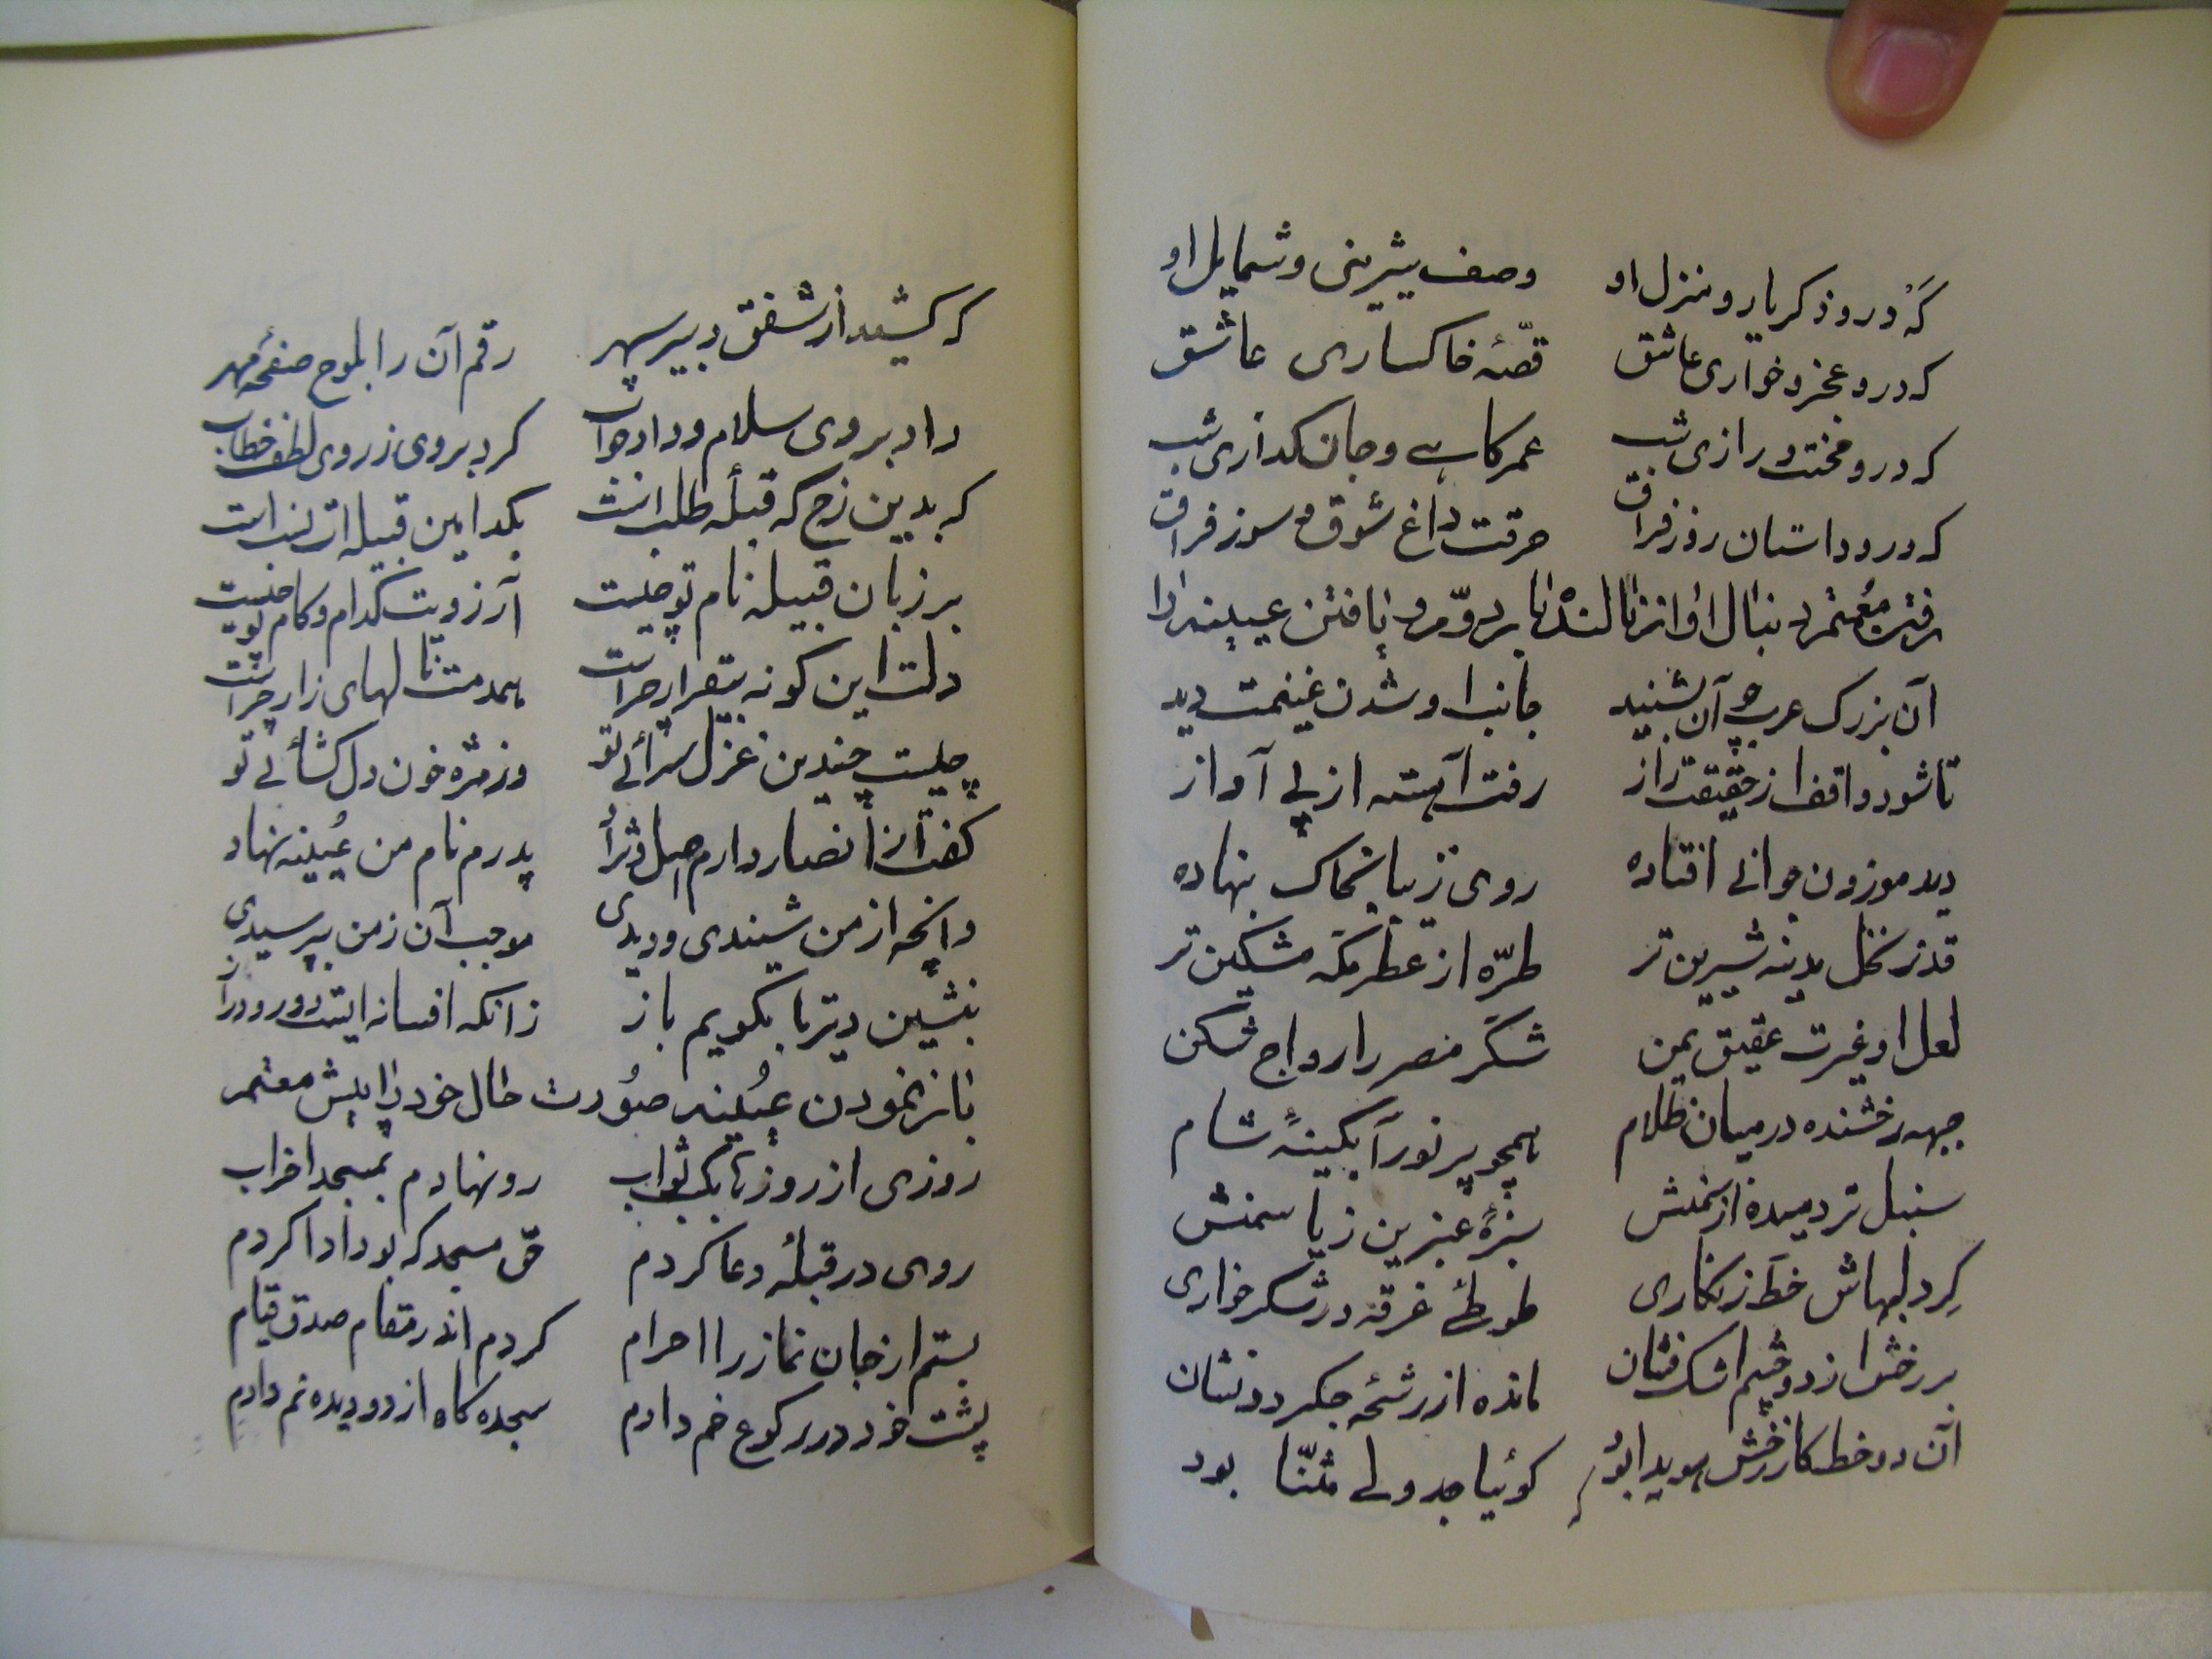 گه درو ذکر یار و منزل او وصف شیرینی و شمایل او
که درو عجز و خواری عاشق قصّهٔ خاکساری عاشق
که درو محنت و درازی شب عمر کاهی و جان گدازی شب
که درو داستان روز فراق حرقت داغ شوق و سوز فراق
رفتن معتمر دنبال آواز نالنده تا بر در و یافتن عیینه را
آن بزرگ عرب چو آن بشنید جانب او شدن غنیمت دید
تا شود واقف از حقیقت راز رفت آهسته از پی آواز
دید موزون جوانی افتاده روی زیبا بخاک بنهاده
قد ز نخل مدینه شیرین تر طرّه از عطر مکّه مشکین تر
لعل او غیرت عقیق یمن شکّر مصر را رواج شکن
جبهه رخشنده در میان ظلام همچو پر نور آبگینهٔ شام
سنبل تر دمیده از سمنش سبزهٔ عنبرین ز یاسمنش
گرد لبهاش خط زنگاری طوطئ غرقه در شکر خواری
بر رخش از دو چشم اشک فشان مانده از رشحه جگر دو نشان
آن دو خط کز رخش هویدا بود گوئیا جدولی مثنّا بود
که کشید از شفق دبیر سپهر رقم آن را بلوح صفحهٔ مهر
داد بر وی سلام و داد جواب کرد بر وی ز روی لطف خطاب
که بدین رخ که قبلهٔ طلب است بکدامین قبیله ات نسب است
بر زبان قبیله نام تو چیست آرزویت کدام و کام تو چیست
دلت این گونه بیقرار چراست همدمت نالهای زار چراست
چیست چندین غزل سرائی تو وز مژه خون دل گشائی تو
گفت از انصار دارم اصل و نژاد پدرم نام من عُیینه نهاد
وانچه از من شنیدی و دیدی موجب آن ز من بپرسیدی
بنشین دیر تا بگویم باز زانکه افسانه ایست دور و دراز
باز نمودن عُیینه صُورت حال خود را پیش معتمر
روزی از روزها بکسب ثواب رو نهادم بمسجد احزاب
روی در قبلهٔ دعا کردم حق مسجد که بود ادا کردم
بستم از جان نماز را احرام کردم اندر مقام صدق قیام
پشت خود در رکوع خم دادم سجده گاه از دو دیده نم دادم